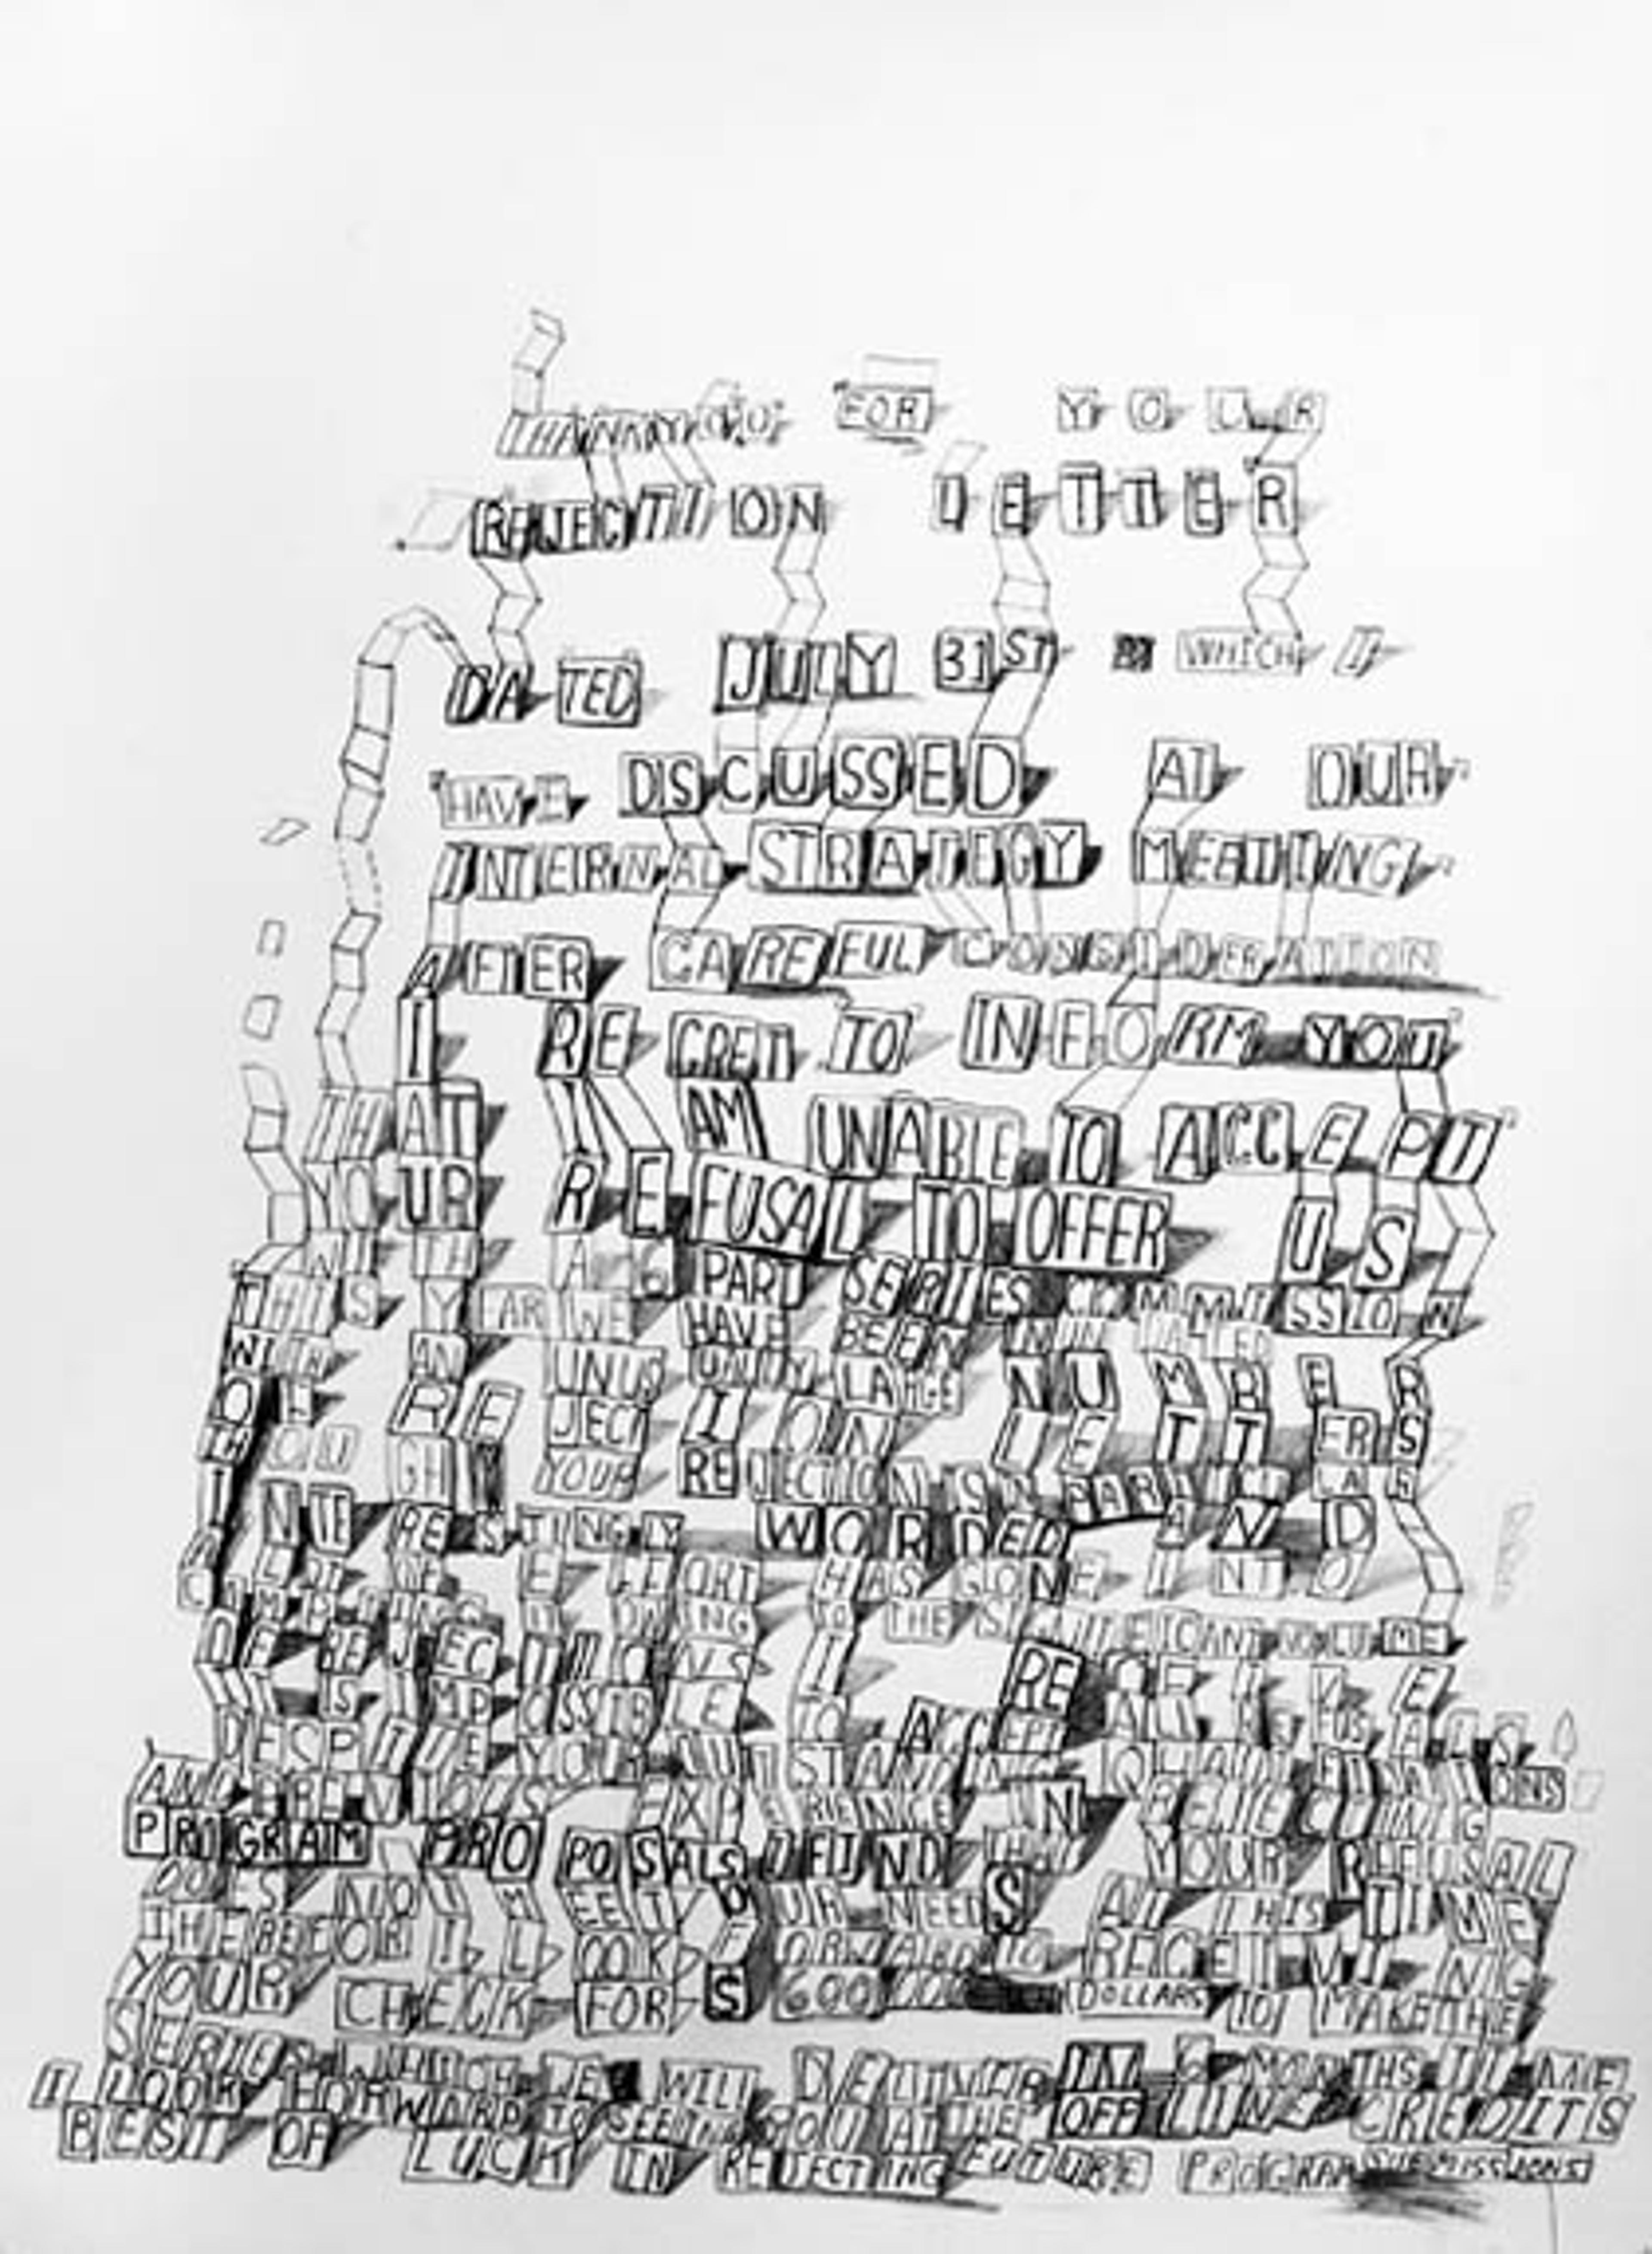 THANKYOU FOR YOUR
REJECTION LETTER
DATED JULY 31ST WHICH I
HAVE DISCUSSED AT OUR
INTERNAL STRATEGY MEETING
AFTER CAREFUL CONSIDERATION
I REGRET TO INFORM YOU
THAT I AM UNABLE TO ACCEPT
YOUR REFUSAL TO OFFER US
A 6 PART SERIES COMMISSION
THIS YEAR WE HAVE BEEN
WITH AN UNUSUALLY LARGE NUMBER
OF REJECTION LETTERS
YOUR REJECTION IS
INTERESTINGLY WORDED AND
EFFORT HAS GONE INTO
TO THE
OF REJECTIONS I RECEIVE
IT IS IMPOSSIBLE TO ACCEPT ALL REFUSALS
DESPITE YOUR
AND PREVIOUS EXPERIENCE IN
PROGRAM PROPOSALS I FIND YOUR REFUSAL
DOES NOT MEET OUR NEEDS AT THIS TIME
THEREFORE I LOOK FORWARD TO RECEIVING
YOUR CHECK FOR $ 600 000 DOLLARS TO MAKE THE
SERIES WHICH WE WILL DELIVER IN 6 MONTHS TIME
I LOOK FORWARD TO SEEING YOU AT THE OFF LINE CREDITS
BEST OF LUCK IN REJECTING FUTURE PROGRAM